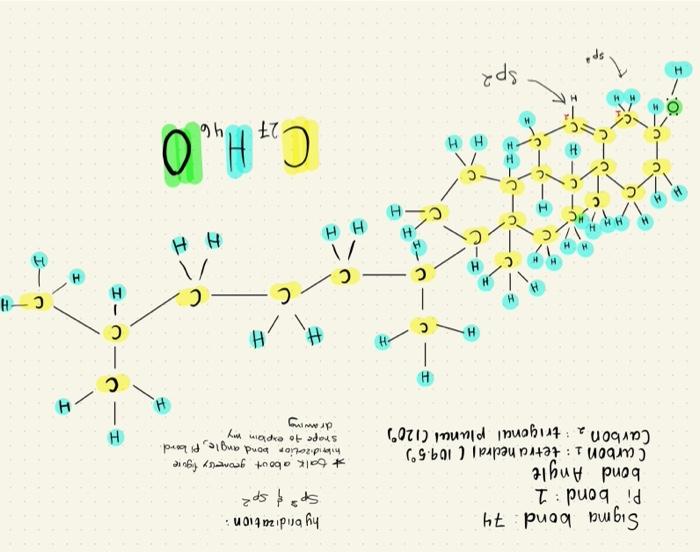 Sigma bond : 74
Pi bond : 1
bond Angle
Carbon 1 : tetrahedral (109.5°)
Carbon 2 : trigonal planar (120°)
hybridization :
sp³ & sp²
* talk about geometry figure
hybridization bond angle, Pi bond
shape to explain my
drawing
C₂₇H₄₆O
sp2
sp³